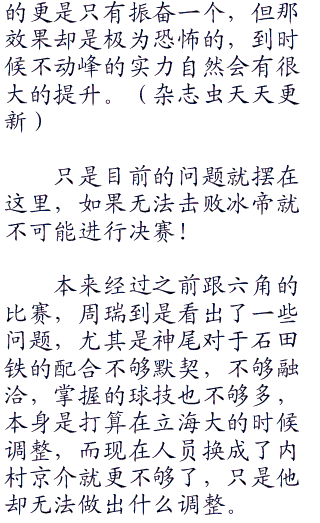 的更是只有振奋一个，但那
效果却是极为恐怖的，到时
候不动峰的实力自然会有很
大的提升。（杂志虫天天更
新）
只是目前的问题就摆在
这里，如果无法击败冰帝就
不可能进行决赛！
本来经过之前跟六角的
比赛，周瑞到是看出了一些
问题，尤其是神尾对于石田
铁的配合不够默契，不够融
洽，掌握的球技也不够多，
本身是打算在立海大的时候
调整，而现在人员换成了内
村京介就更不够了，只是他
却无法做出什么调整。